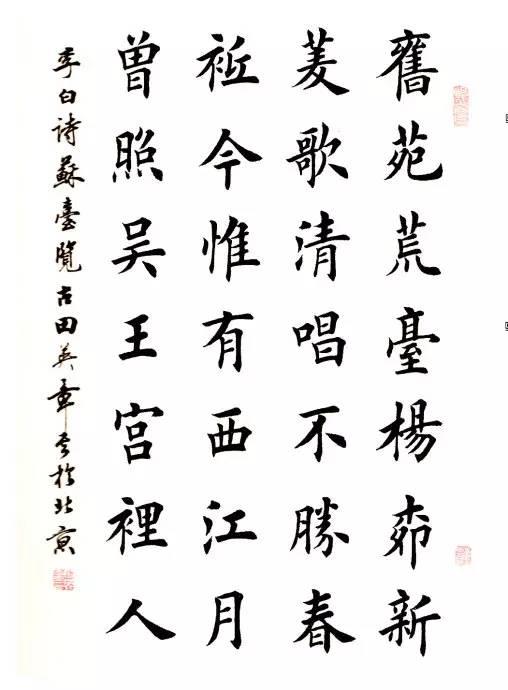 舊苑荒臺楊柳新
菱歌清唱不勝春
祗今惟有西江月
曾照吴王宫裡人
李白诗蘇臺覽古田英章书於北京